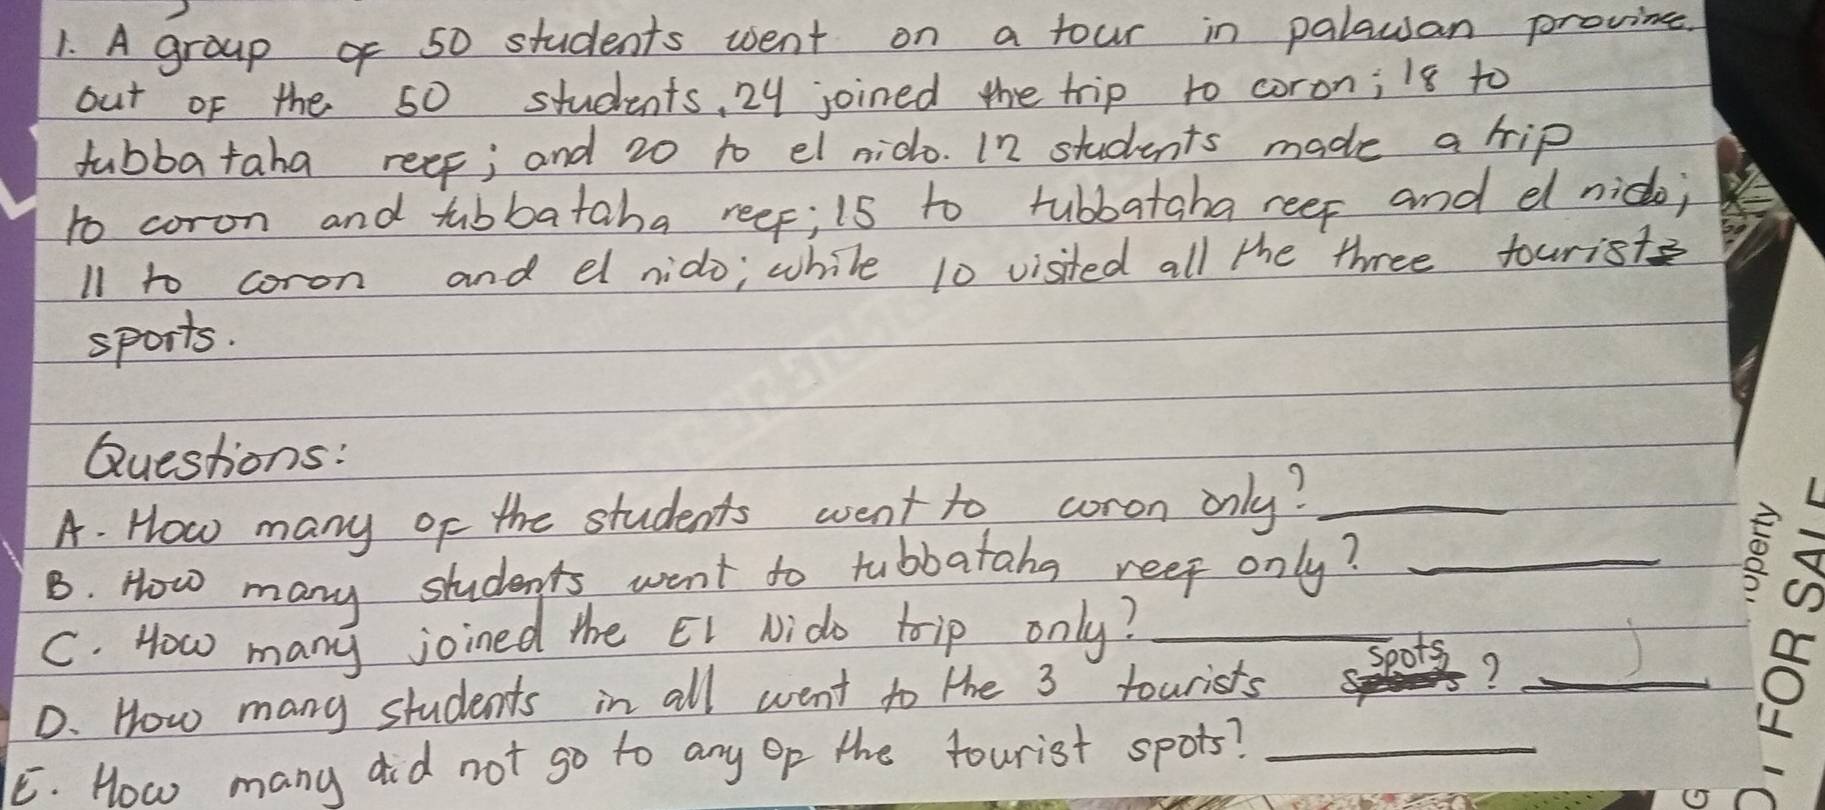 1. A group of 50 students went on a tour in palawan province.
out of the 50 students, 24 joined the trip to coron; 18 to
tubba taha reef; and 20 to el nido. 12 students made a trip
to coron and tubbataha reef; 15 to tubbataha reef and el nido;
11 to coron and el nido; while 10 visited all the three tourist
sports.
Questions:
A. How many of the students went to coron only?
B. How many students went to tubbataha reef only?
C. How many joined the El Nido trip only?
D. How many students in all went to the 3 tourists spots?
E. How many did not go to any of the tourist spots?
FOR SALE